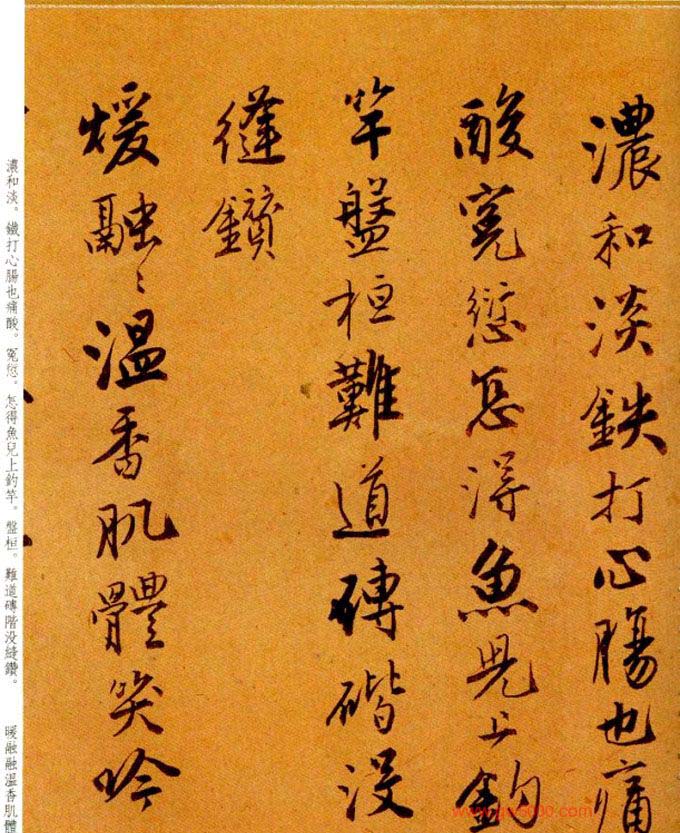 濃和淡鉄打心腸也痛
酸寃愆怎得魚兒上釣
竿盤桓難道磚階没
縫鑽
煖融々温香肌體笑吟
濃和淡。鐵打心腸也痛酸。冤愆。怎得魚兒上釣竿。盤桓。難道磚階没縫鑽。　暖融融温香肌體